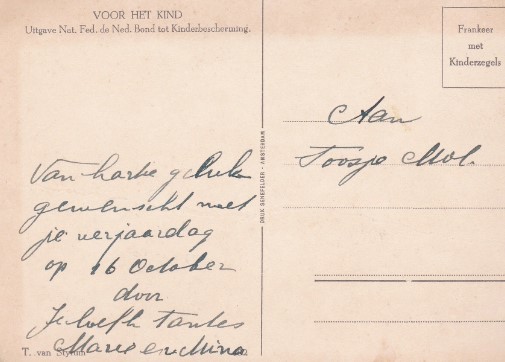 VOOR HET KIND
Uitgave Nat. Fed. de Ned. Bond tot Kinderbescherming.
Frankeer
met
Kinderzegels
Aan
Toosje Mol.
DRUK SENEFELDER - AMSTERDAM
Van harte geluk
gewenscht met
je verjaardag
op 16 October
door
Tantes
Marie en Mina
T. van